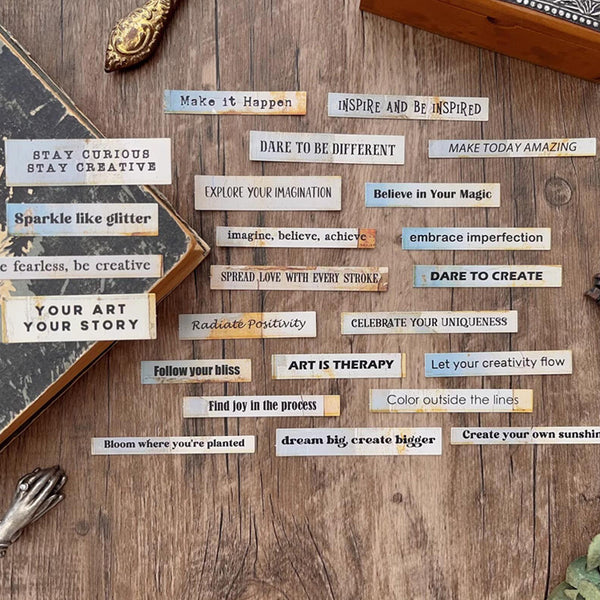 Make it Happen
INSPIRE AND BE INSPIRED
STAY CURIOUS
STAY CREATIVE
DARE TO BE DIFFERENT
MAKE TODAY AMAZING
EXPLORE YOUR IMAGINATION
Believe in Your Magic
Sparkle like glitter
imagine, believe, achieve
embrace imperfection
e fearless, be creative
SPREAD LOVE WITH EVERY STROKE
DARE TO CREATE
YOUR ART
YOUR STORY
Radiate Positivity
CELEBRATE YOUR UNIQUENESS
Follow your bliss
ART IS THERAPY
Let your creativity flow
Find joy in the process
Color outside the lines
Bloom where you're planted
dream big, create bigger
Create your own sunshin